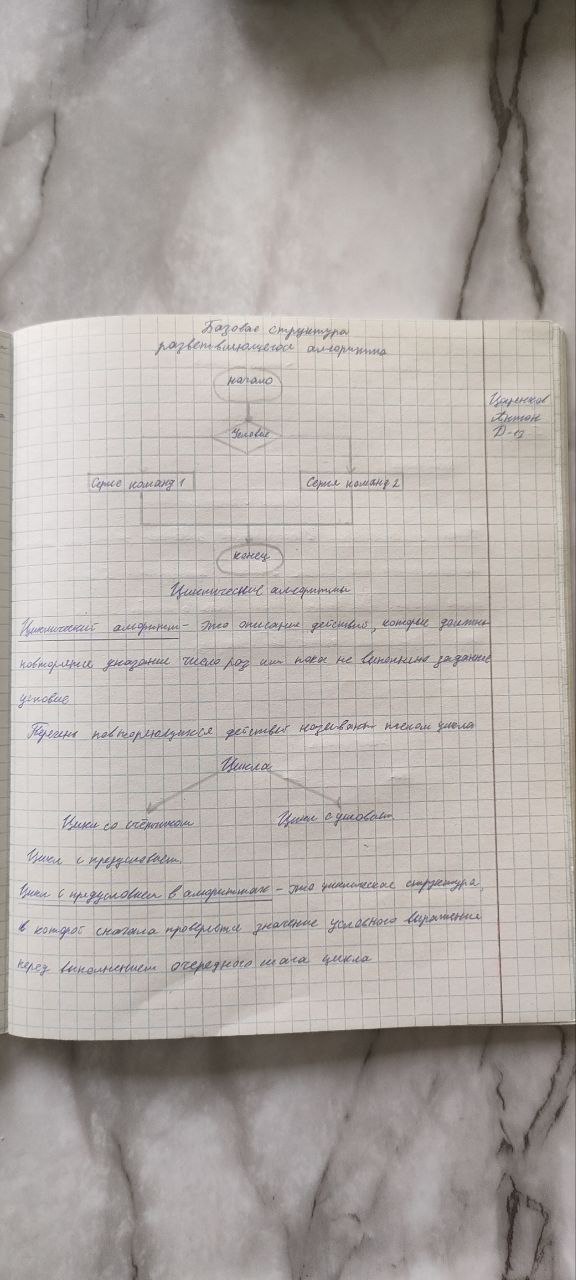 Базовае структура
разветвляющегося алгоритма
начало
Условие
Серие команд 1
Серия команд 2
конец
Царенков
Антон
Д-13
Циклические алгоритмы
Циклический алгоритм - это описание действий, которые должны
повторятся указаное число раз или пока не выполнено заданое
условие
Перечень повторяющихся действий называют телом цикла
Цикла
Цикл со счётчиком
Цикл с условием
Цикл с предусловием.
Цикл с предусловием в алгоритмах - это циклическое структура,
в которой сначала проверяется значение условного выражения
перед выполнением очередного шага цикла